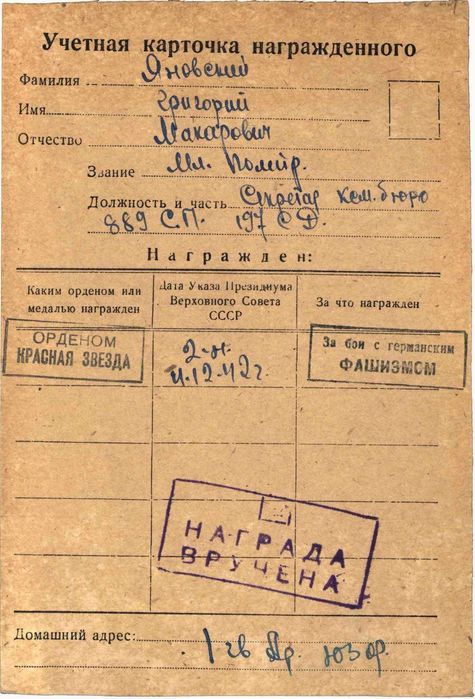 Учетная карточка награжденного
Фамилия Яновский
Имя Григорий
Отчество Макарович
Звание Мл. политр.
Должность и часть Секретар ком. бюро
889 С.П. 197 СД.
Награжден:
Каким орденом или медалью награжден
Дата Указа Президиума Верховного Совета СССР
За что награжден
ОРДЕНОМ
КРАСНАЯ ЗВЕЗДА
2-н.
4.12.42г.
За бои с германским
ФАШИЗМОМ
НАГРАДА
ВРУЧЕНА
Домашний адрес:
1 гв Ар. ЮЗФ.